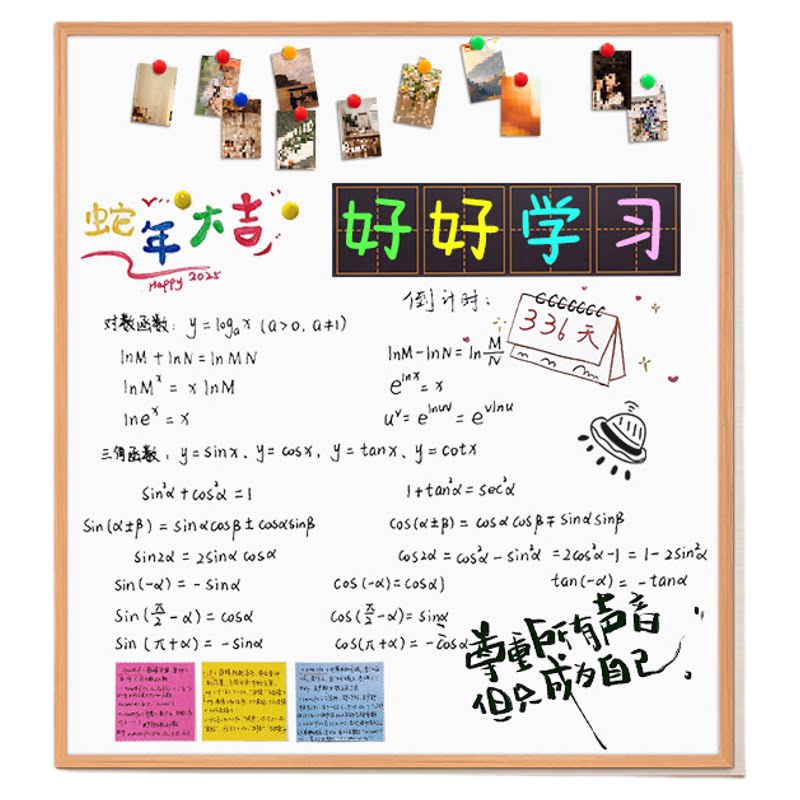 蛇年大吉
Happy 2025
好好学习
倒计时:
336天
对数函数: y=logₐx (a>0, a≠1)
lnM+lnN=lnMN
lnM-lnN=ln M/N
lnMˣ=xlnM
e^lnx=x
lneˣ=x
uᵛ=e^lnuᵛ=e^vlnu
三角函数: y=sinx、y=cosx, y=tanx、y=cotx
sin²α+cos²α=1
1+tan²α=sec²α
Sin(α±β)=sinαcosβ±cosαsinβ
cos(α±β)=cosαcosβ∓sinαsinβ
sin2α=2sinαcosα
cos2α=cos²α-sin²α=2cos²α-1=1-2sin²α
Sin(-α)=-Sinα
cos(-α)=cosα)
tan(-α)=-tanα
Sin(π/2-α)=cosα
cos(π/2-α)=sinα
Sin(π+α)=-sinα
cos(π+α)=-cosα
尊重所有声音
但只成为自己.